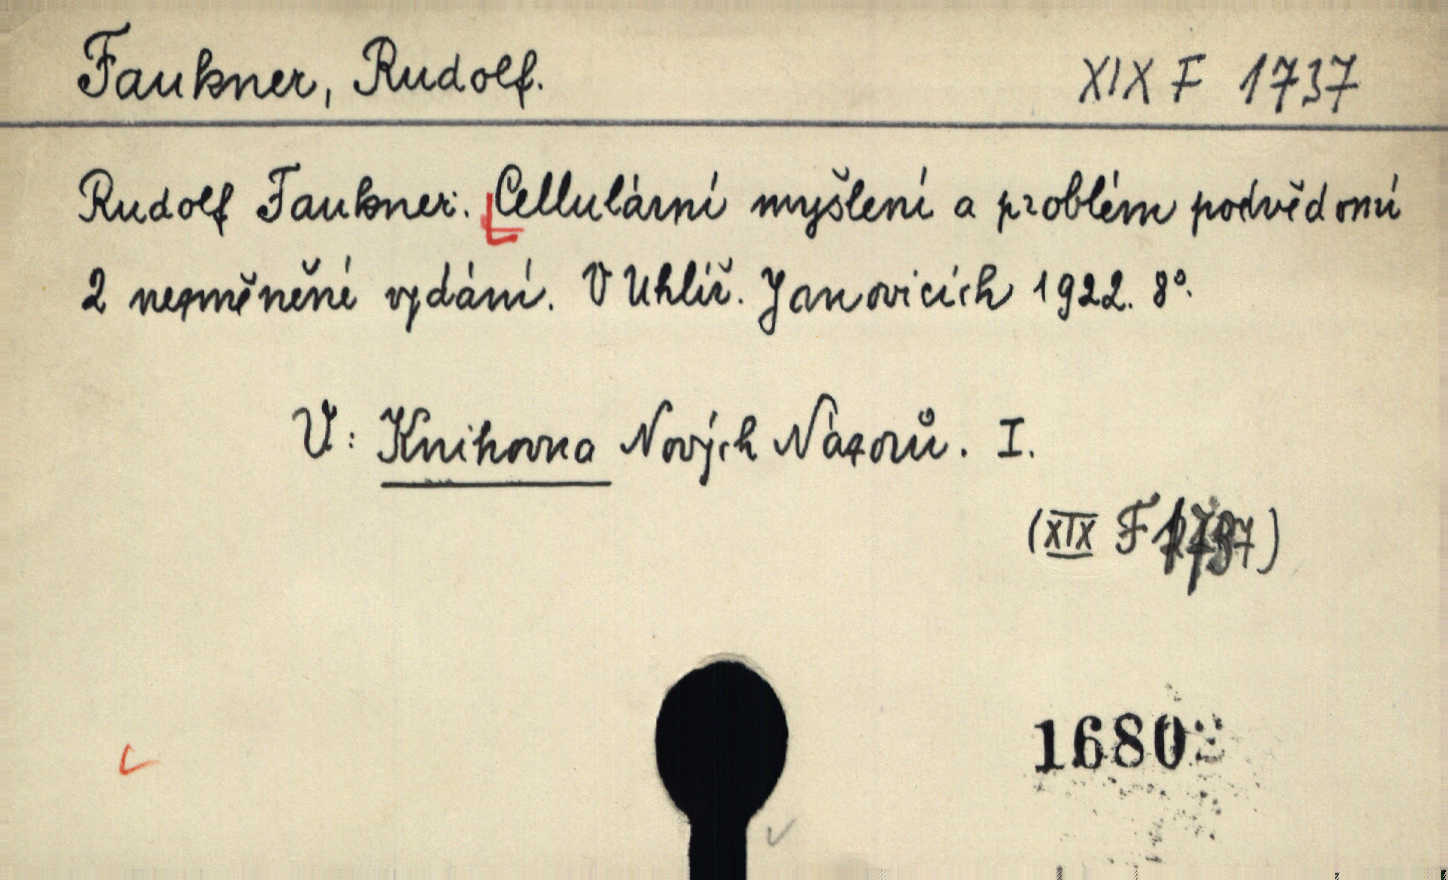 Faukner, Rudolf.
XIX F 1737
Rudolf Faukner: Cellulární myšlení a problém podvědomí
2 nezměněné vydání. V Uhlíř. Janovicích 1922. 8°.
V: Knihovna Nových Názorů. I.
(XIX F 1737)
1680